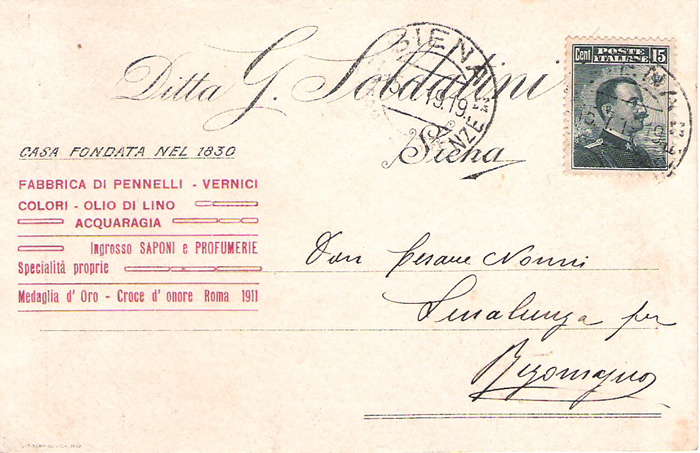 Ditta G. Soldatini
Siena
CASA FONDATA NEL 1830
FABBRICA DI PENNELLI - VERNICI
COLORI - OLIO DI LINO
ACQUARAGIA
Ingrosso SAPONI e PROFUMERIE
Specialità proprie
Medaglia d' Oro - Croce d' onore Roma 1911
SIENA
PARTENZE
Cent POSTE ITALIANE 15
Don Cesare Nonni
Sinalunga per
Rigomagno